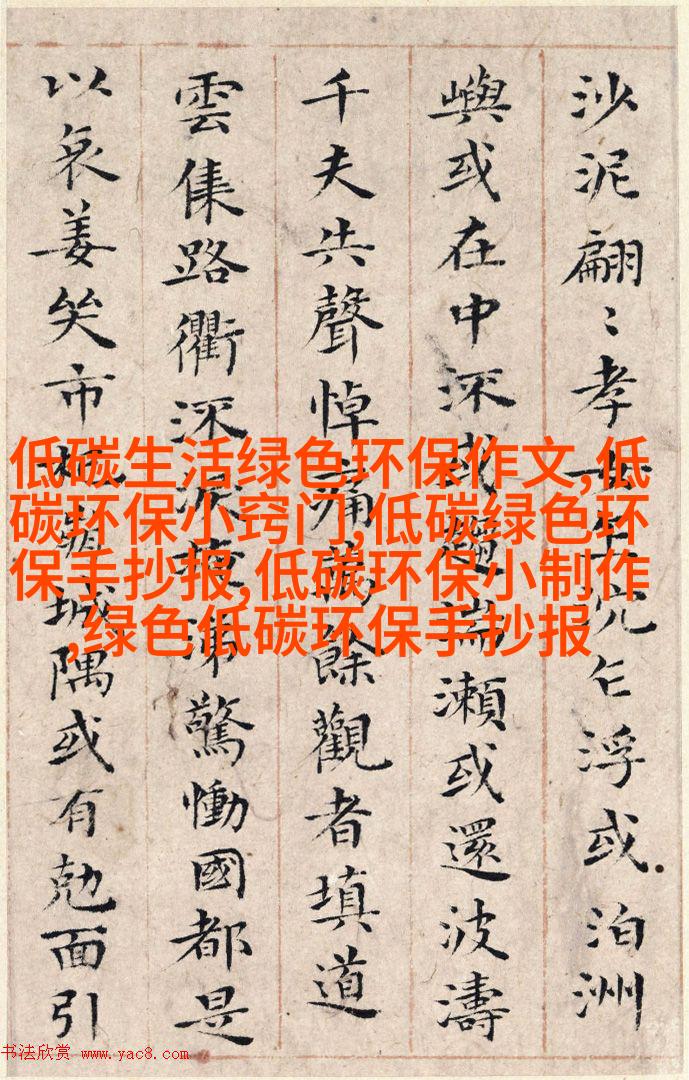 沙泥翩〻孝女乍沉乍浮或泊洲
嶼或在中流或趨湍瀨或還波濤
千夫共聲悼痛萬餘觀者填道
雲集路衢流淚掩涕驚慟國都是
以哀姜哭市杞崩城隅或有勊面引
低碳生活绿色环保作文,低
碳环保小窍门,低碳绿色环
保手抄报,低碳环保小制作
,绿色低碳环保手抄报
书法欣赏 www.yac8.com